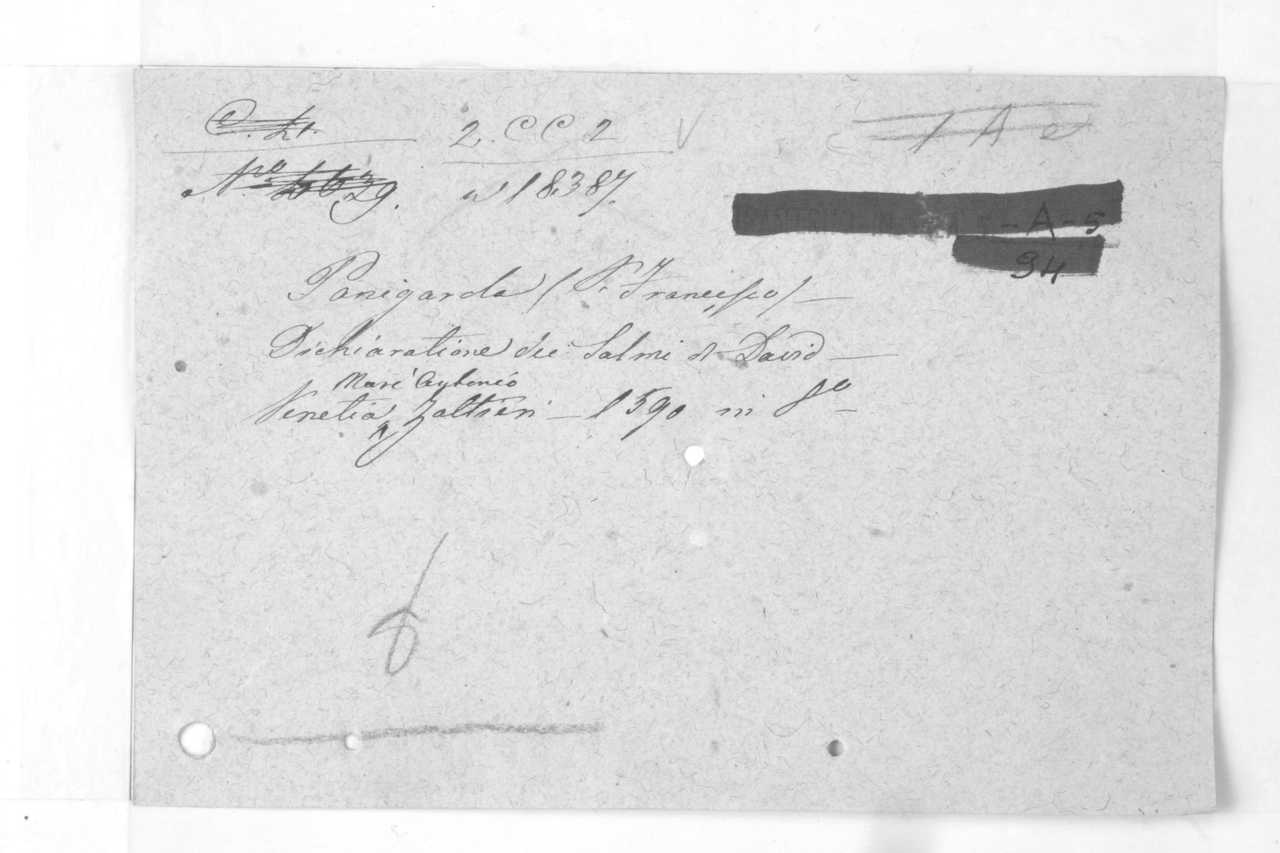 2. C C 2
1 A e
18387.
- A - 5
34
Panigarola (F. Francisco) —
Dichiaratione dei Salmi di David —
Marc' Antonio
Venetia, Zaltieri — 1590 in 8º